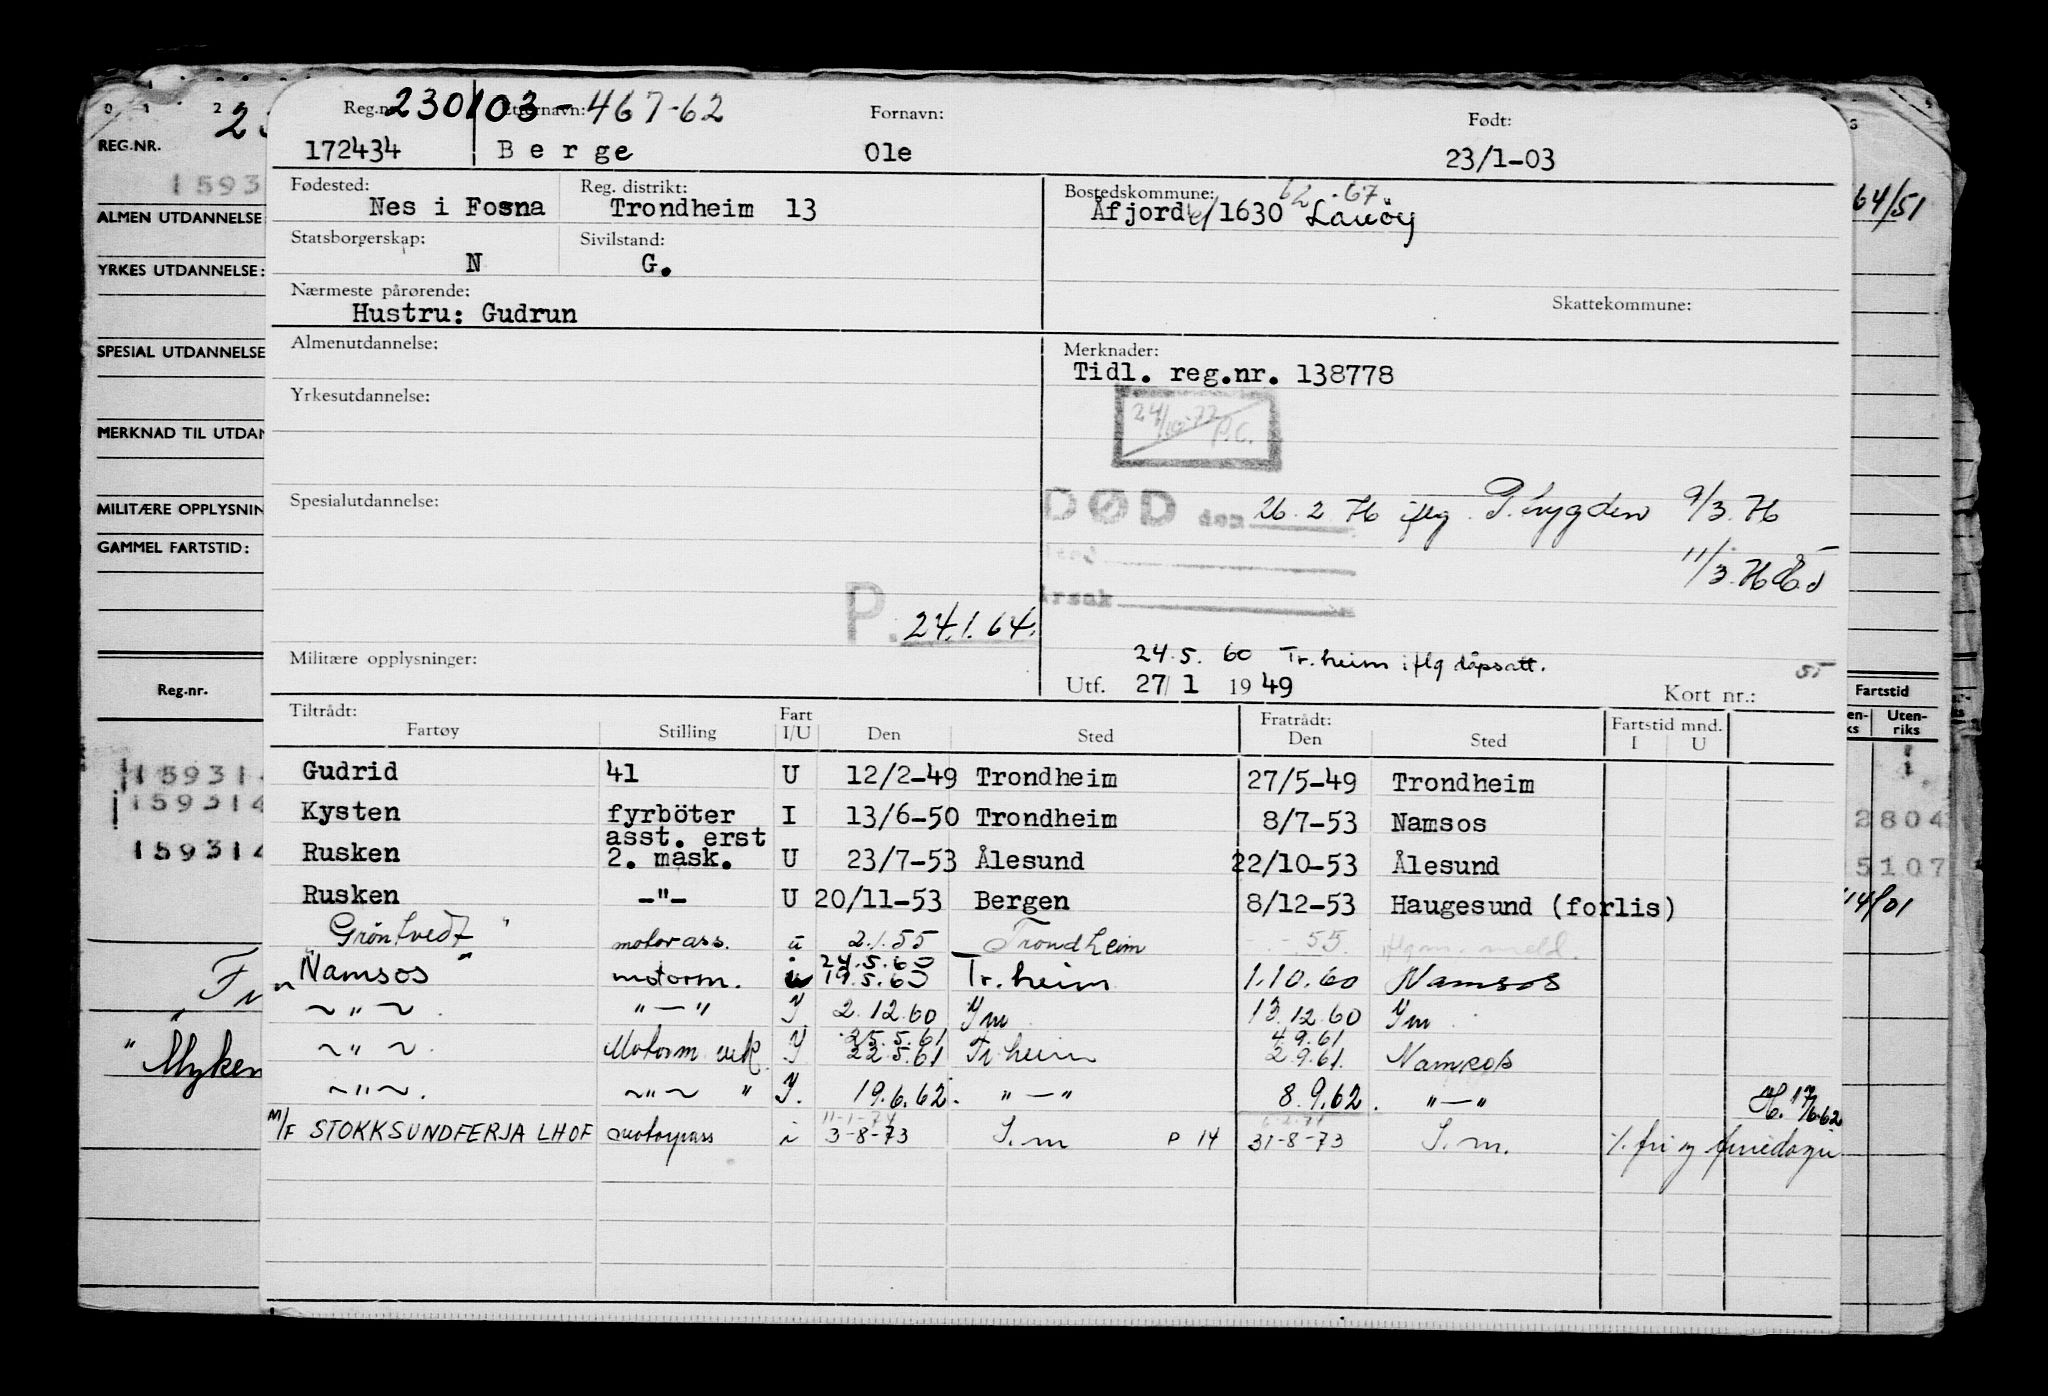 0 1 2
REG.NR.
1593
ALMEN UTDANNELSE
YRKES UTDANNELSE:
SPESIAL UTDANNELSE
MERKNAD TIL UTDAN
MILITÆRE OPPLYSNIN
GAMMEL FARTSTID:
Reg.nr.
159314
159314
159314
" Myken
Reg.nr. 230103-467-62 Etternavn: Fornavn: Født:
172434 Berge Ole 23/1-03
Fødested: Reg. distrikt: Bostedskommune: 62.-67.
Nes i Fosna Trondheim 13 Åfjord 1630
Statsborgerskap: Sivilstand:
N G.
Nærmeste pårørende: Skattekommune:
Hustru: Gudrun
Almenutdannelse: Merknader:
Tidl. reg.nr. 138778
Yrkesutdannelse:
P.C.
Spesialutdannelse:
DØD den 26.2 76 iflg. P. trygden 9/3.76
11/3.76
Årsak
P. 24.1.64.
Militære opplysninger: 24.5.60 Tr.heim iflg
Utf. 27/1 1949 Kort nr.:
Tiltrådt: Fart Fratrådt: Fartstid mnd.
Fartøy Stilling I/U Den Sted Den Sted I U
Gudrid 41 U 12/2-49 Trondheim 27/5-49 Trondheim
Kysten fyrböter I 13/6-50 Trondheim 8/7-53 Namsos
asst. erst
Rusken 2. mask. U 23/7-53 Ålesund 22/10-53 Ålesund
Rusken -"- U 20/11-53 Bergen 8/12-53 Haugesund (forlis)
Gröntvedt " motorass. u 2.1.55 Trondheim 55.
24.5.60
"Namsos" motorm. 19.5.60 Tr.heim 1.10.60 Namsos
~ " ~ " — " Y 2.12.60 Ym 13.12.60 Ym
25.5.61 4.9.61
~ " ~ Motorm. vik. Y 22.5.61 Tr heim 2.9.61. Namsos
~ " ~. ~ " ~ " Y. 19.6.62. " — " 8.9.62. " — " 17/6-62
11-1-74
M/F STOKKSUNDFERJA LHOF motorpass i 3-8-73 S.m P 14 31-8-73 S.m. ./. fri og feriedager
64/51
Fartstid
Uten-
riks
2804
5107